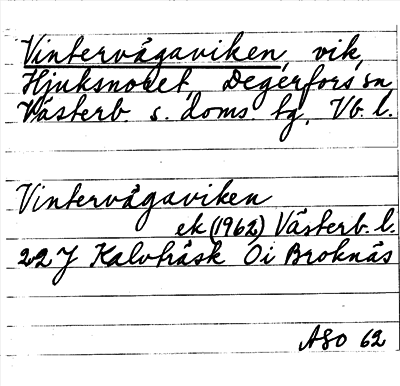 Vintervägaviken, vik,
Hjuksnoret, Degerfors sn,
Västerb. s. doms. tg, Vb. l.
Vintervägaviken
ek (1962) Västerb. l.
22 J Kalvträsk Oi Broknäs
ASO 62